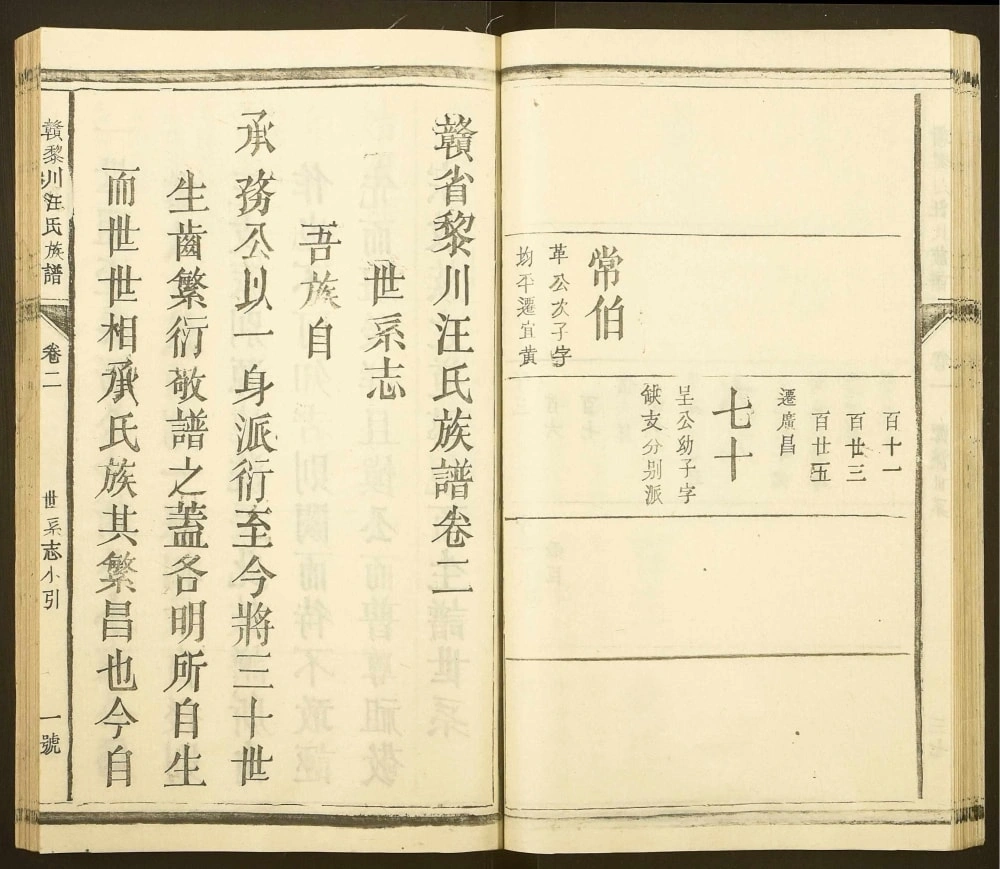 常伯
革公次子字
均平遷宜黄
百十一
百廿三
百廿五
遷廣昌
七十
呈公幼子字
缺支分别派
贛省黎川汪氏族譜卷二
世系志
吾族自
承務公以一身派衍至今將三十世
生齒繁衍敬譜之蓋各明所自生
而世世相承氏族其繁昌也今自
贛黎川汪氏族譜
卷二
世系志小引
一號